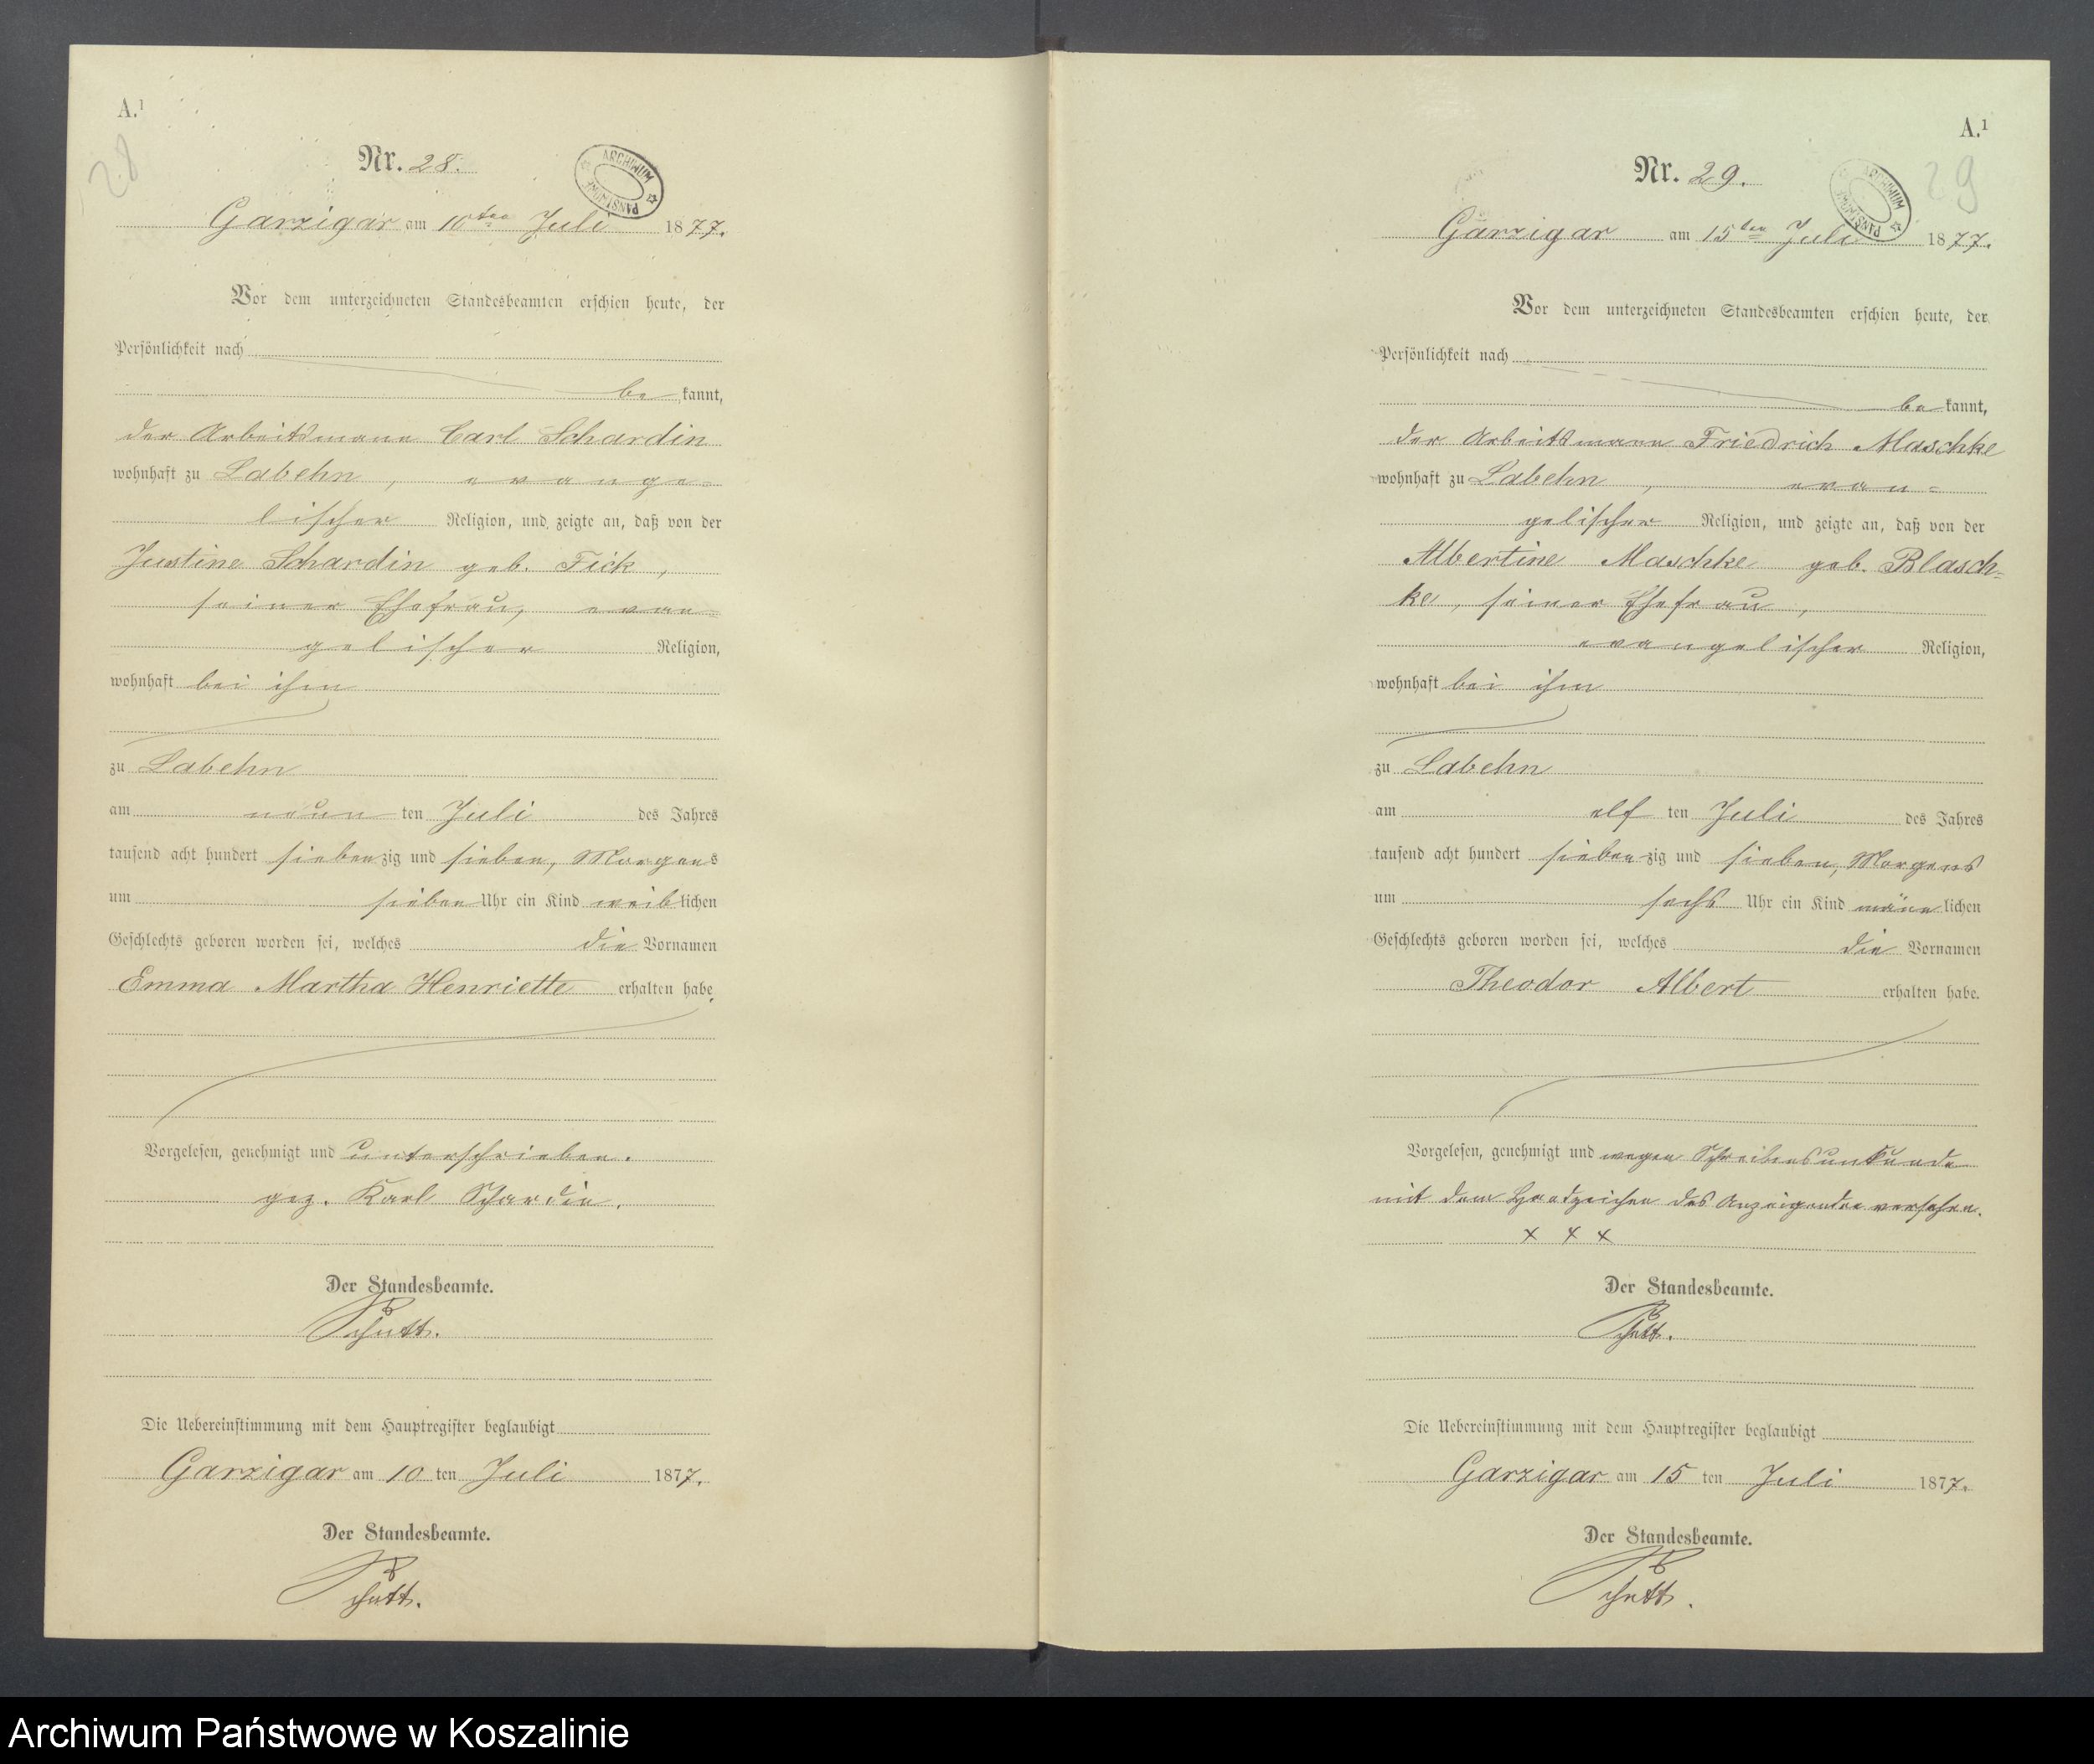 A.¹
28
Nr. 28.
ARCHIWUM PAŃSTWOWE
Garzigar am 10ten Juli 1877.
Vor dem unterzeichneten Standesbeamten erschien heute, der
Persönlichkeit nach
be kannt,
der Arbeitsmann Carl Schardin
wohnhaft zu Labehn, evange=
lischer Religion, und zeigte an, daß von der
Justine Schardin geb. Fick,
seiner Ehefrau, evan=
gelischer Religion,
wohnhaft bei ihm
zu Labehn
am neun ten Juli des Jahres
tausend acht hundert siebenzig und sieben, Morgens
um sieben Uhr ein Kind weiblichen
Geschlechts geboren worden sei, welches die Vornamen
Emma Martha Henriette erhalten habe.
Vorgelesen, genehmigt und unterschrieben.
gez. Karl Schardin.
Der Standesbeamte.
Schutt.
Die Uebereinstimmung mit dem Hauptregister beglaubigt
Garzigar am 10 ten Juli 1877.
Der Standesbeamte.
Schutt.
A.¹
29
Nr. 29.
ARCHIWUM PAŃSTWOWE
Garzigar am 15ten Juli 1877.
Vor dem unterzeichneten Standesbeamten erschien heute, der
Persönlichkeit nach
be kannt,
der Arbeitsmann Friedrich Maschke
wohnhaft zu Labehn, evan=
gelischer Religion, und zeigte an, daß von der
Albertine Maschke geb. Blasch=
ke, seiner Ehefrau,
evangelischer Religion,
wohnhaft bei ihm
zu Labehn
am elf ten Juli des Jahres
tausend acht hundert siebenzig und sieben, Morgens
um sechs Uhr ein Kind männlichen
Geschlechts geboren worden sei, welches die Vornamen
Theodor Albert erhalten habe.
Vorgelesen, genehmigt und wegen Schreibensunkunde
mit dem Handzeichen des Anzeigenden versehen.
x x x
Der Standesbeamte.
Schutt.
Die Uebereinstimmung mit dem Hauptregister beglaubigt
Garzigar am 15 ten Juli 1877.
Der Standesbeamte.
Schutt.
Archiwum Państwowe w Koszalinie